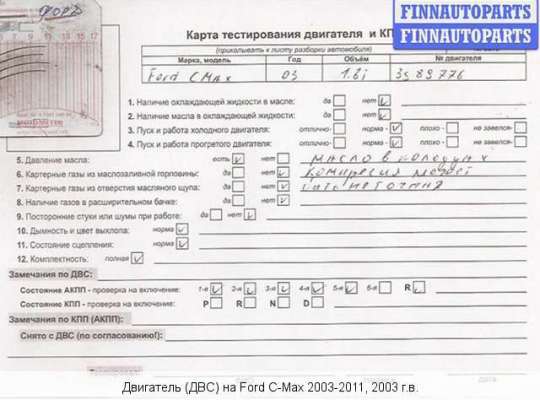 FINNAUTOPARTS
FINNAUTOPARTS
Карта тестирования двигателя и КП
(прикалывать к листу разборки автомобиля)
Марка, модель Год Объём № двигателя
Ford CMax 03 1.8i 3S89776
1. Наличие охлаждающей жидкости в масле: да нет
2. Наличие масла в охлаждающей жидкости: да нет
3. Пуск и работа холодного двигателя: отлично- норма - плохо - не завелся-
4. Пуск и работа прогретого двигателя: отлично- норма - плохо - не завелся-
5. Давление масла: есть нет масло в колодцах
6. Картерные газы из маслозаливной горловины: да нет
7. Картерные газы из отверстия масляного щупа: да нет
8. Наличие газов в расширительном бачке: да нет
9. Посторонние стуки или шумы при работе: да нет
10. Дымность и цвет выхлопа: норма
11. Состояние сцепления: норма
12. Комплектность: полная
Замечания по ДВС:
Состояние АКПП - проверка на включение: 1-я 2-я 3-я 4-я 5-я 6-я R
Состояние КПП - проверка на включение: P R N D
Замечания по КПП (АКПП):
Снято с ДВС (по согласованию!):
Двигатель (ДВС) на Ford C-Max 2003-2011, 2003 г.в.